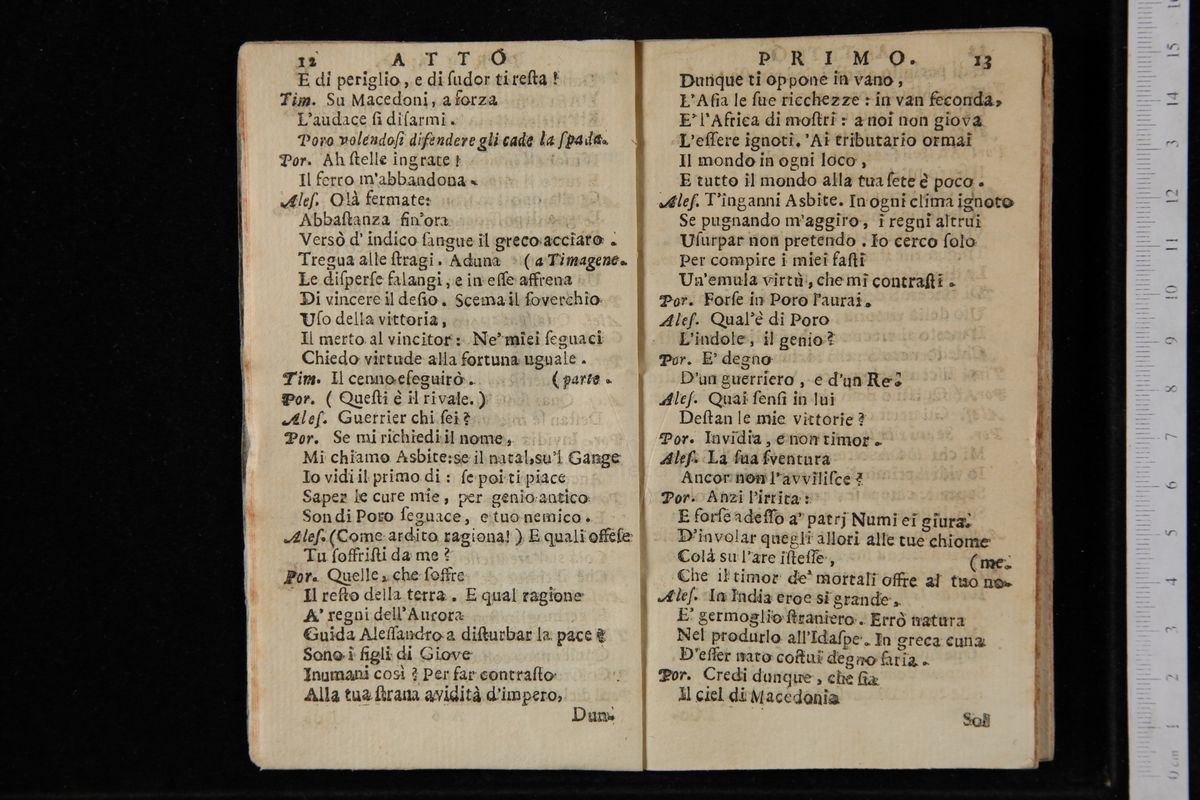 12 A T T O
E di periglio, e di ſudor ti reſta!
Tim. Su Macedoni, a forza
L'audace ſi diſarmi.
Poro volendoſi difendere gli cade la ſpada.
Por. Ah ſtelle ingrate!
Il ferro m'abbandona.
Aleſ. Olà fermate:
Abbaſtanza fin'ora
Verſò d'indico ſangue il greco acciaro.
Tregua alle ſtragi. Aduna (a Timagene.
Le diſperſe falangi, e in eſſe affrena
Di vincere il deſio. Scema il ſoverchio
Uſo della vittoria,
Il merto al vincitor: Ne' miei ſeguaci
Chiedo virtude alla fortuna uguale.
Tim. Il cenno eſeguirò. (parte.
Por. (Queſti è il rivale.)
Aleſ. Guerrier chi ſei?
Por. Se mi richiedi il nome,
Mi chiamo Asbite: se il natal, su'l Gange
Io vidi il primo di: ſe poi ti piace
Saper le cure mie, per genio antico
Son di Poro ſeguace, e tuo nemico.
Aleſ. (Come ardito ragiona!) E quali offeſe
Tu ſoffriſti da me?
Por. Quelle, che ſoffre
Il reſto della terra. E qual ragione
A' regni dell'Aurora
Guida Aleſſandro a diſturbar la pace?
Sono i figli di Giove
Inumani così? Per far contraſto
Alla tua ſtrana avidità d'impero,
Dun-
P R I M O. 13
Dunque ti oppone in vano,
L'Aſia le ſue ricchezze: in van feconda,
E' l'Africa di moſtri: a noi non giova
L'eſſere ignoti. 'Ai tributario ormai
Il mondo in ogni loco,
E tutto il mondo alla tua ſete è poco.
Aleſ. T'inganni Asbite. In ogni clima ignoto
Se pugnando m'aggiro, i regni altrui
Uſurpar non pretendo. Io cerco ſolo
Per compire i miei faſti
Un'emula virtù, che mi contraſti.
Por. Forſe in Poro l'aurai.
Aleſ. Qual'è di Poro
L'indole, il genio?
Por. E' degno
D'un guerriero, e d'un Re.
Aleſ. Quai ſenſi in lui
Deſtan le mie vittorie?
Por. Invidia, e non timor.
Aleſ. La ſua ſventura
Ancor non l'avviliſce?
Por. Anzi l'irrita:
E forſe adeſſo a' patrj Numi ei giura
D'involar quegli allori alle tue chiome
Colà su l'are iſteſſe, (me.
Che il timor de' mortali offre al tuo no-
Aleſ. In India eroe sì grande,
E' germoglio ſtraniero. Errò natura
Nel produrlo all'Idaſpe. In greca cuna
D'eſſer nato coſtui degno ſaria.
Por. Credi dunque, che ſia
Il ciel di Macedonia
Sol